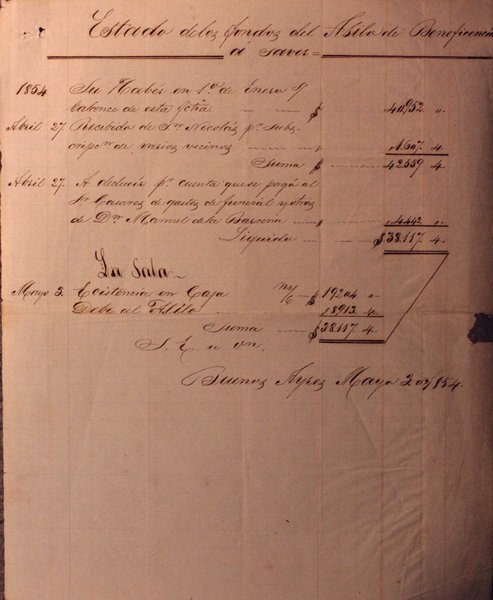 Estado de los fondos del Asilo de Beneficencia
á saver =
1854 Su Haber en 1º de Enero
balance de esta fcha $ 40,952 "
Abril 27. Recibido de Sr. Nicolás pr. Subs
cripcn. de varios vecinos 1.607. 4.
Suma $ 42559 4.
Abril 27. A deducir pr. cuenta que se pagó al
Sr. Casares de gastos de funeral y otros
de Dn. Manuel de la Barcena 4.442 "
Liquido $ 38.117. 4.
La Sala
Mayo 3. Ecsistencia en Caja m/c $ 19204 "
Debe el Asilo 18913. 4.
Suma $ 38.117. 4.
S. E. u on.
Buenos Ayres Mayo 3 de /854.